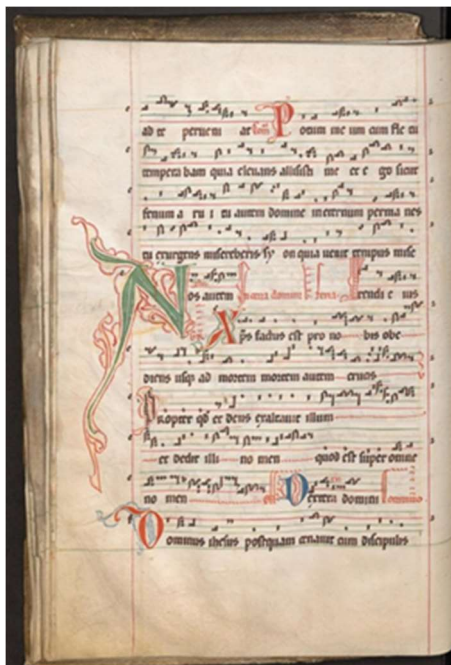 ad te perveni at Potum me um cum fle tu
tempera bam quia elevans allisisti me et e go sicut
fenum a ru i tu autem domine ineternum perma nes
tu exurgens misereberis sy on quia venit tempus mise
Nos autem In cena domini
xps factus est pro no bis obe
diens usq ad mortem mortem autem crucis
Propter qd et deus exaltavit illum
et dedit illi no men quod est super omne
no men Dextera domini
Dominus ihesus postquam cenavit cum discipulis